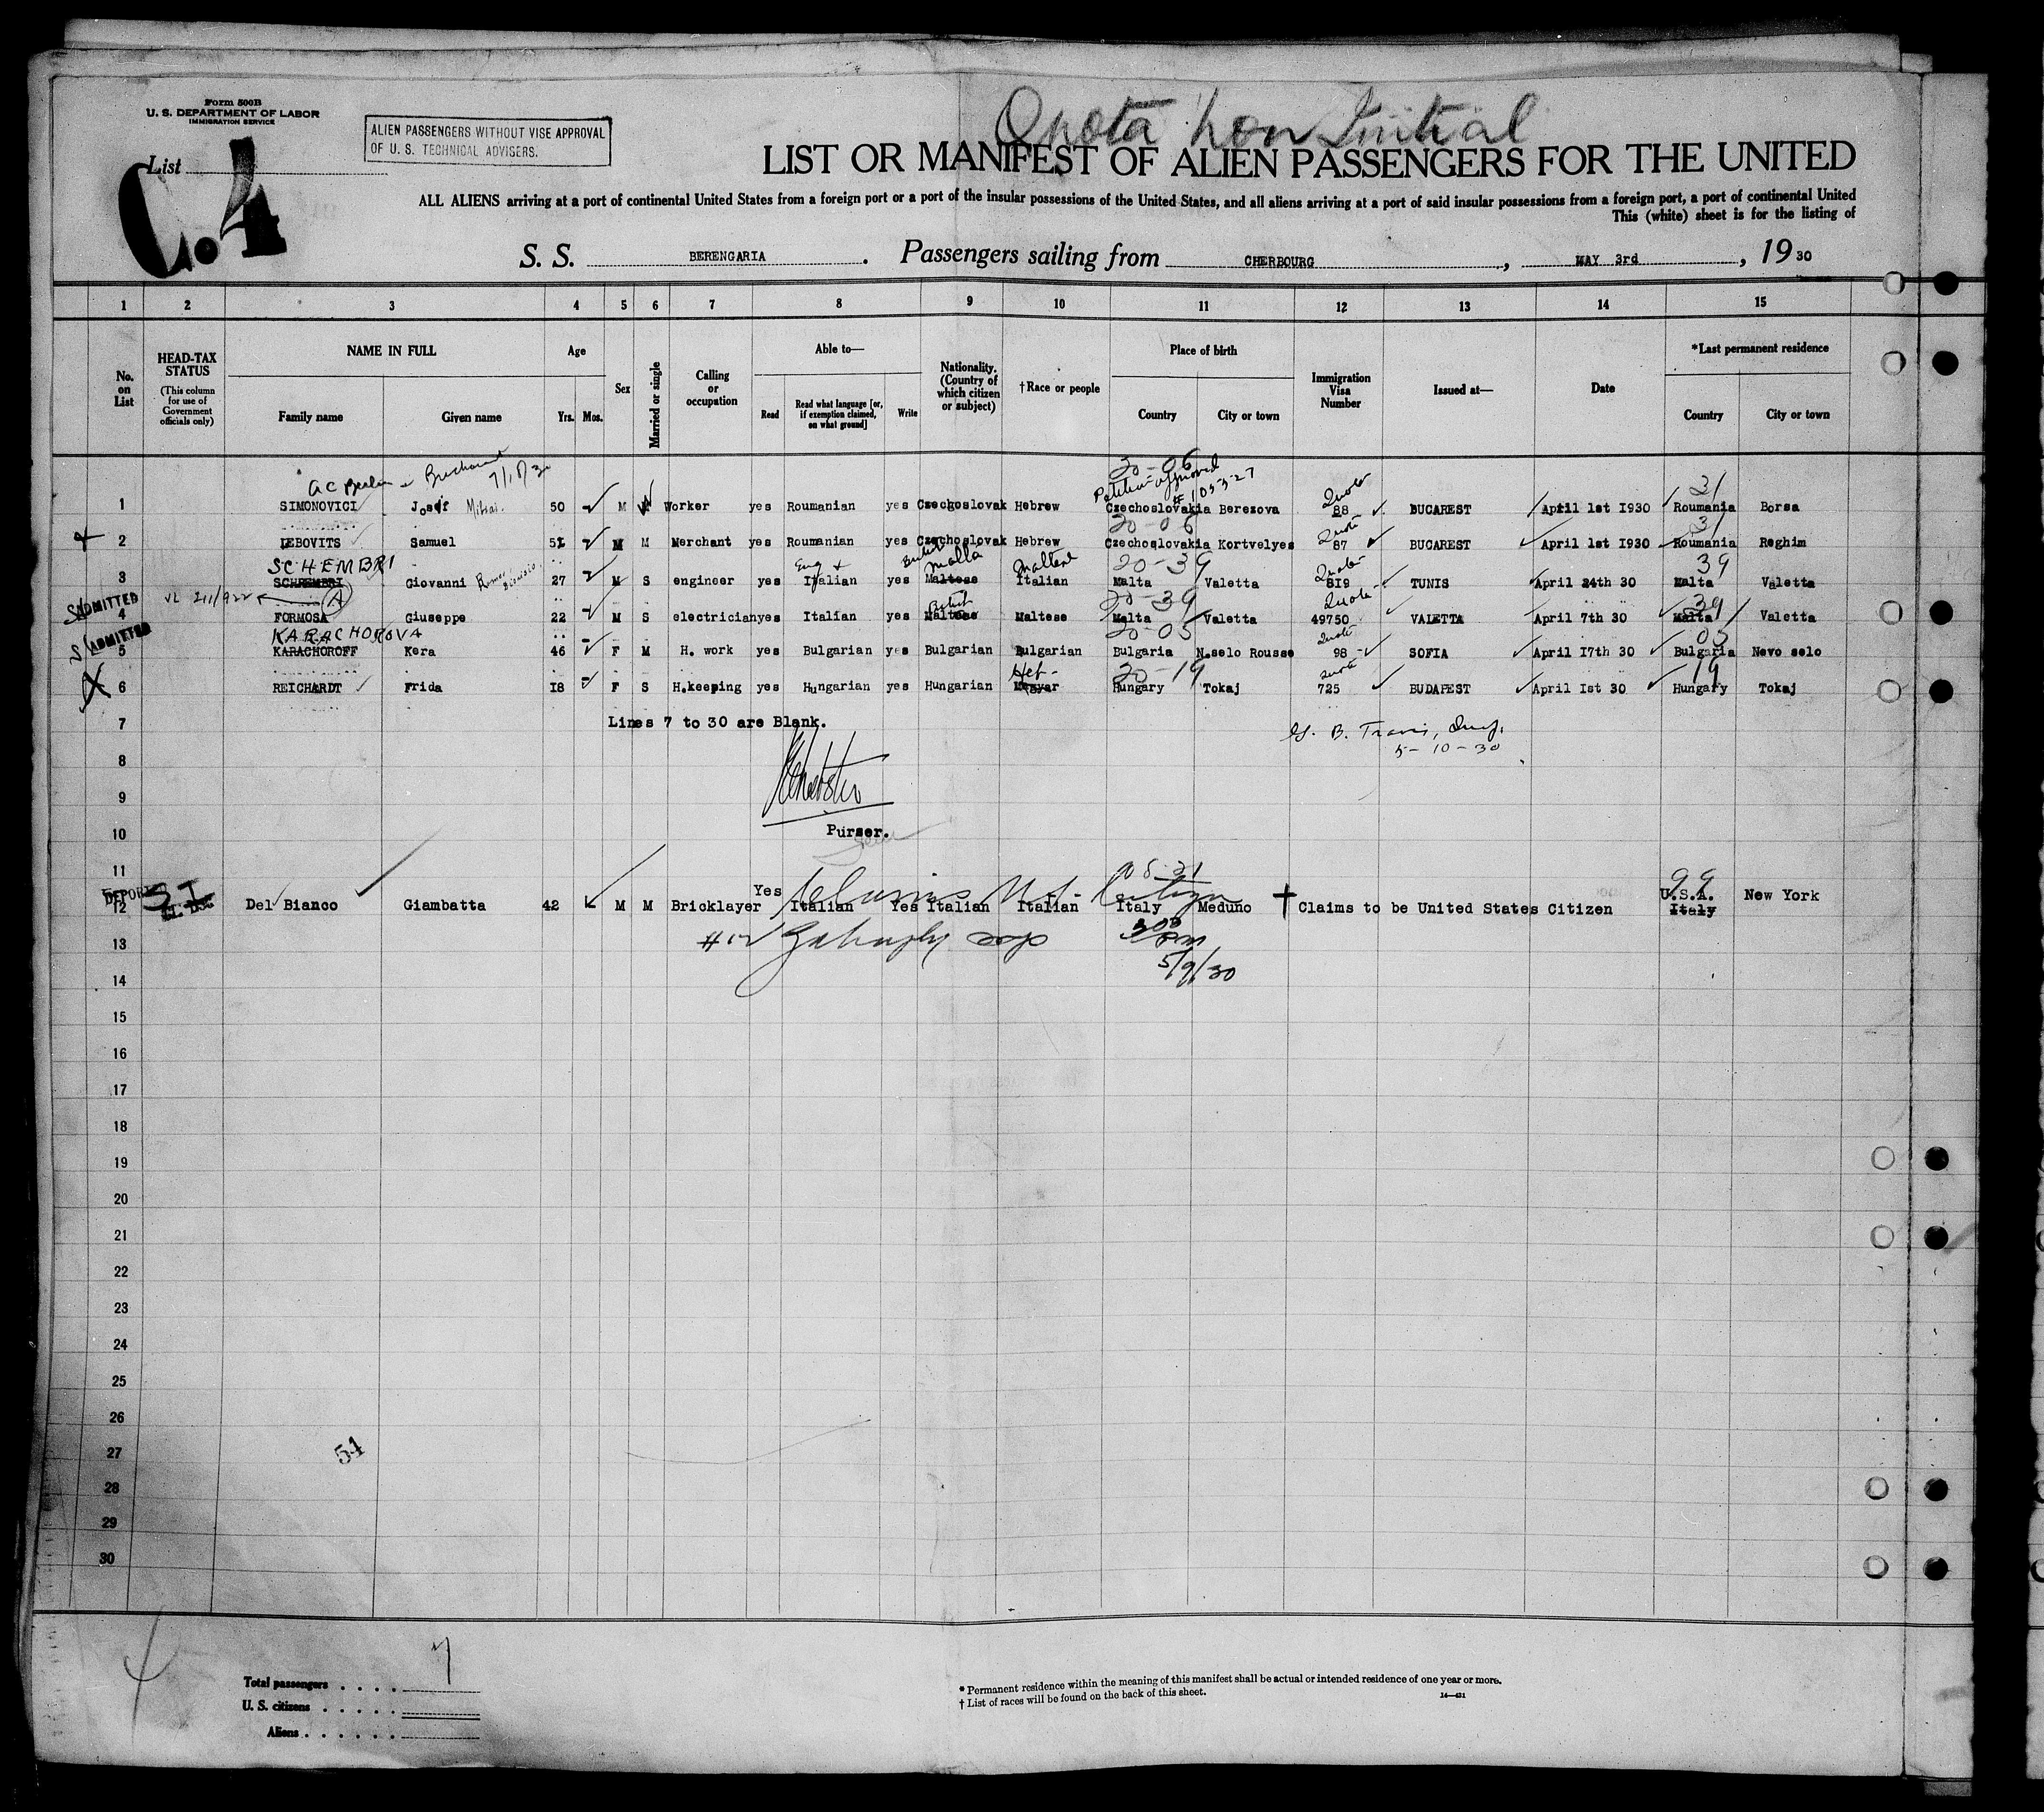 Form 500B
U. S. DEPARTMENT OF LABOR
IMMIGRATION SERVICE
List
C.4
ALIEN PASSENGERS WITHOUT VISE APPROVAL
OF U. S. TECHNICAL ADVISERS.
Quota Non Initial
LIST OR MANIFEST OF ALIEN PASSENGERS FOR THE UNITED
ALL ALIENS arriving at a port of continental United States from a foreign port or a port of the insular possessions of the United States, and all aliens arriving at a port of said insular possessions from a foreign port, a port of continental United
This (white) sheet is for the listing of
S. S. BERENGARIA . Passengers sailing from CHERBOURG , MAY 3rd , 19 30
1 2 3 4 5 6 7 8 9 10 11 12 13 14 15
No. on List
HEAD-TAX STATUS (This column for use of Government officials only)
NAME IN FULL Family name Given name
Age Yrs. Mos.
Sex
Married or single
Calling or occupation
Able to— Read Read what language [or, if exemption claimed, on what ground] Write
Nationality. (Country of which citizen or subject)
†Race or people
Place of birth Country City or town
Immigration Visa Number
Issued at—
Date
*Last permanent residence Country City or town
20-06
Petition approved
31
1 SIMONOVICI Josif Mihai 50 M Worker yes Roumanian yes Czechoslovak Hebrew Czechoslovakia Berezova Quota 88 BUCAREST April 1st I930 Roumania Borsa
20-06 31
2 LEBOVITS Samuel M M Merchant yes Roumanian yes Czechoslovak Hebrew Czechoslovakia Kortvelyes Quota 87 BUCAREST April 1st I930 Roumania Reghim
SCHEMBRI Eng + British Malta Maltese 20-39 39
3 SCHREMBRI Giovanni 27 M S engineer yes Italian yes Maltese Italian Malta Valetta Quota 8I9 TUNIS April 24th 30 Malta Valetta
ADMITTED (A) British 20-39 39
4 FORMOSA Giuseppe 22 M S electrician yes Italian yes Maltese Maltese Malta Valetta Quota 49750 VALETTA April 7th 30 Malta Valetta
ADMITTED KARACHOROVA 20-05 05
5 KARACHOROFF Kera 46 F M H. work yes Bulgarian yes Bulgarian Bulgarian Bulgaria N.selo Rousse Quota 98 SOFIA April I7th 30 Bulgaria Novo selo
Heb- 20-19 19
6 REICHARDT Frida I8 F S H.keeping yes Hungarian yes Hungarian Magyar Hungary Tokaj Quota 725 BUDAPEST April Ist 30 Hungary Tokaj
7 Lines 7 to 30 are Blank.
B. Travis, Insp.
5-10-30
8
9
10 Purser.
11
DEPORTED SI Claims U.S. Citizen 99
12 Del Bianco Giambatta 42 M M Bricklayer Yes Italian Yes Italian Italian Italy Meduno † Claims to be United States Citizen U.S.A. Italy New York
13 #12
5/9/30
14
15
16
17
18
19
20
21
22
23
24
25
26
27
54
28
29
30
Total passengers . . . . 7
U. S. citizens . . . . .
Aliens . . . . . .
* Permanent residence within the meaning of this manifest shall be actual or intended residence of one year or more.
† List of races will be found on the back of this sheet.
14—431